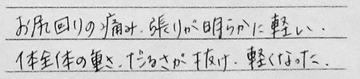 お尻回りの痛み、張りが明らかに軽い、
体全体の重さ、だるさが抜け、軽くなった、